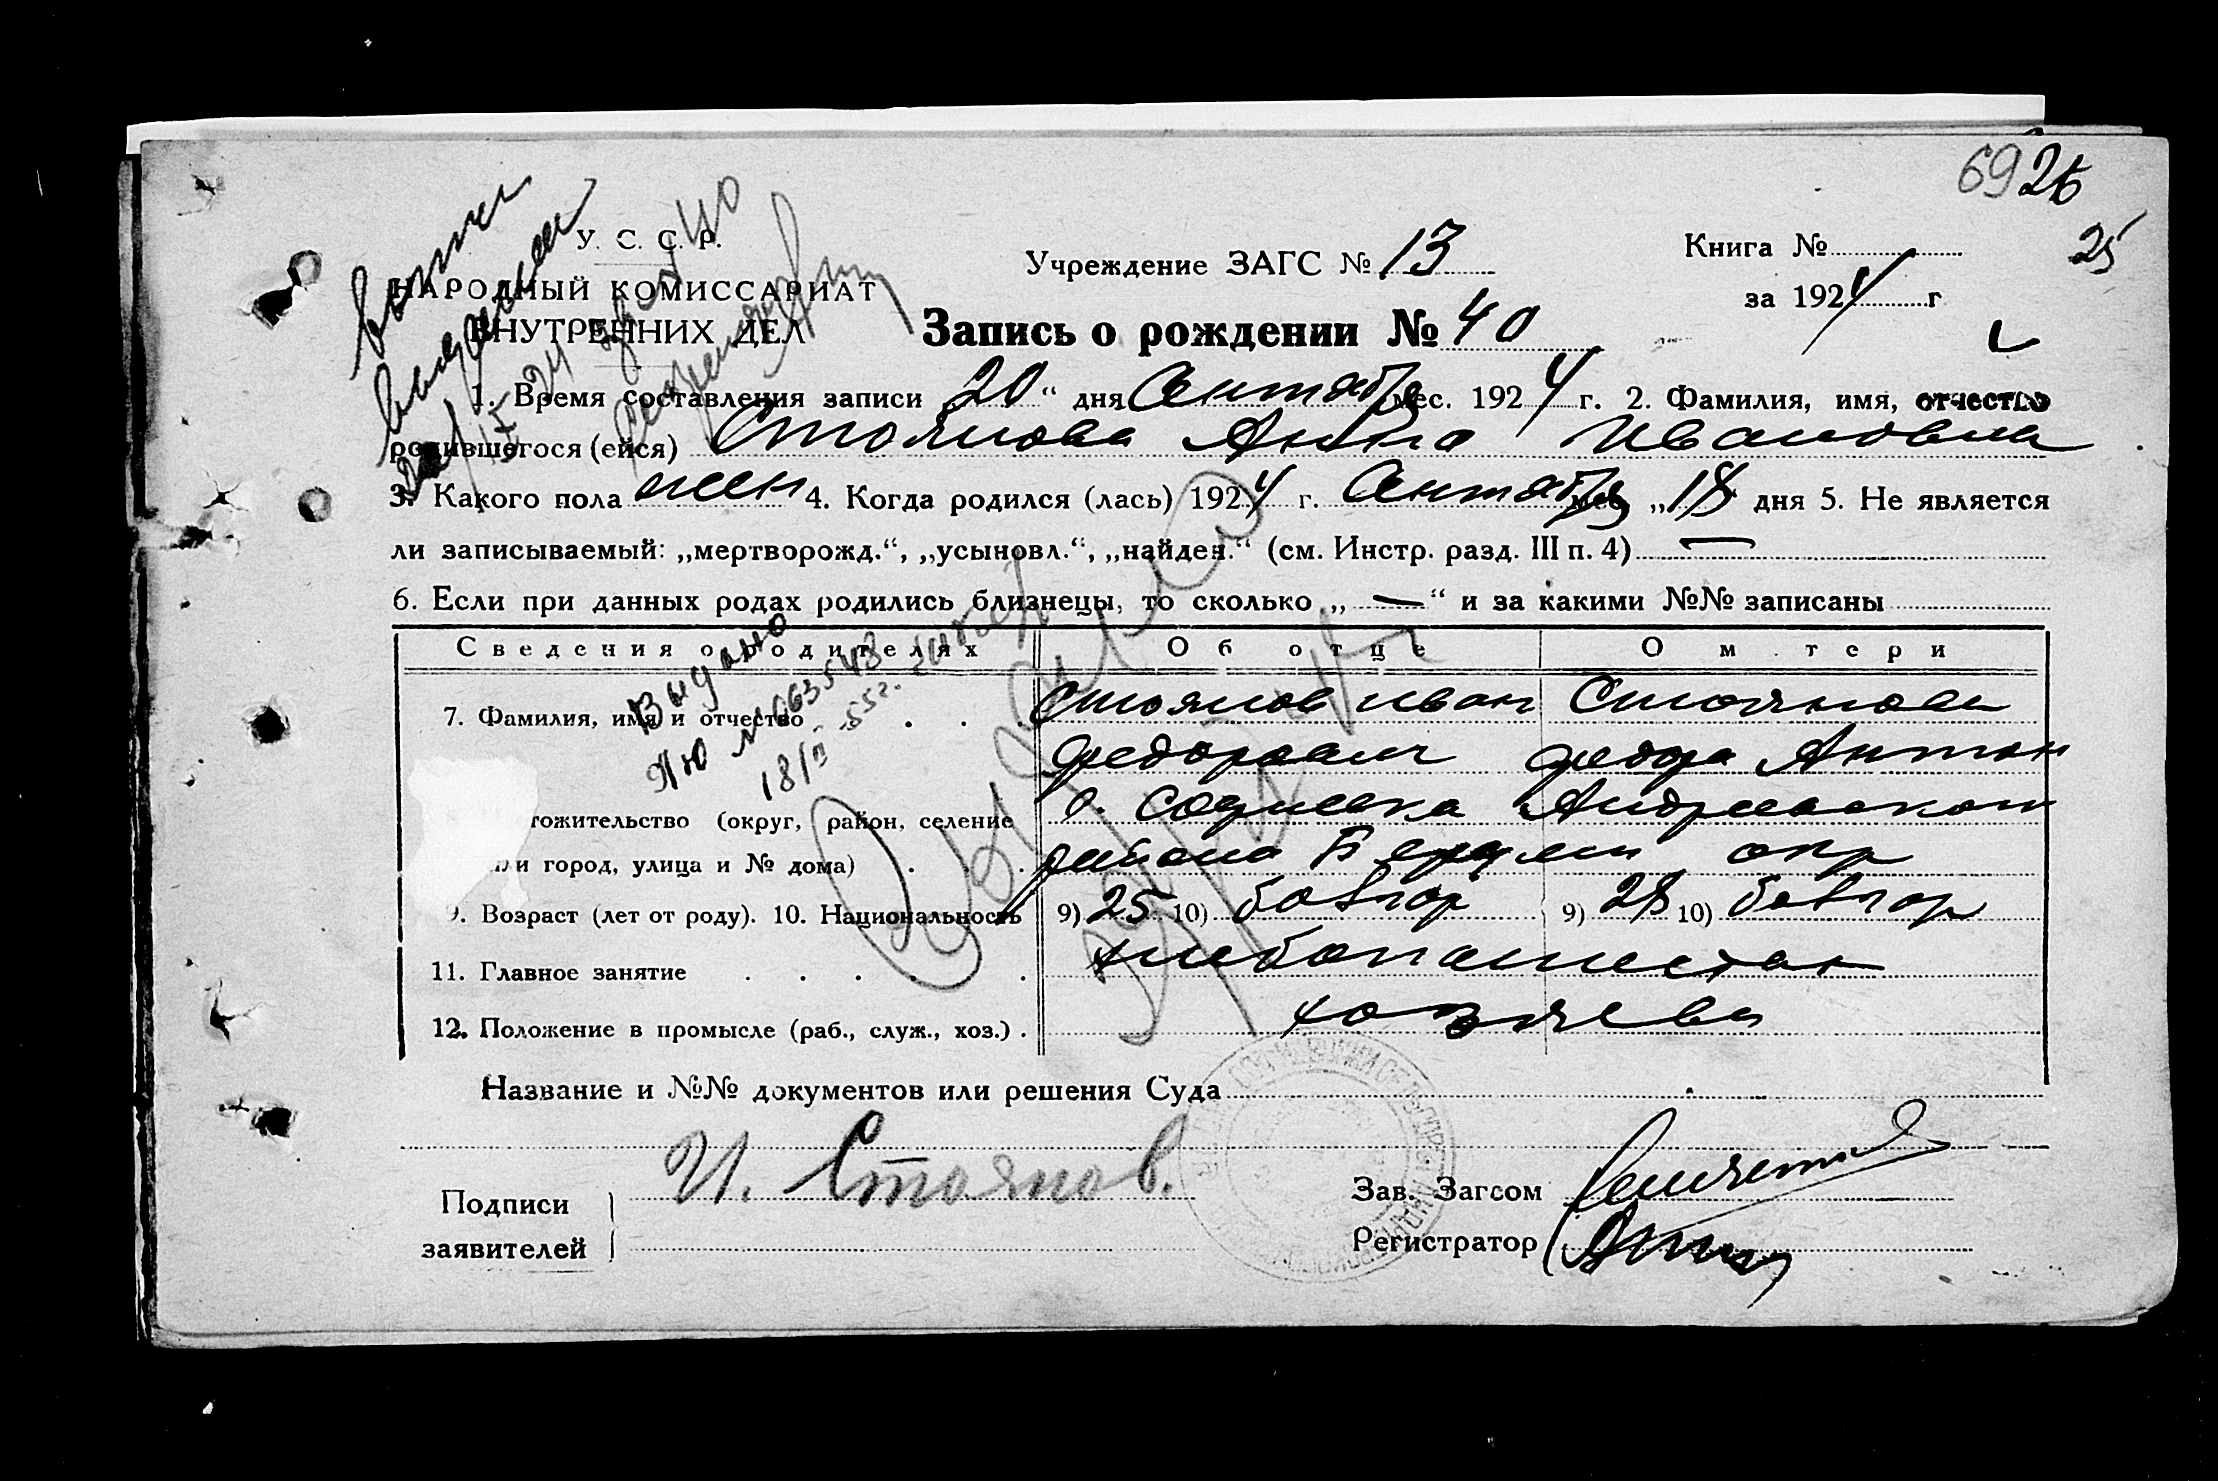 6926
25
У. С. С. Р.
НАРОДНЫЙ КОМИССАРИАТ
ВНУТРЕННИХ ДЕЛ
Учреждение ЗАГС № 13
Книга №
за 1924 г
Запись о рождении № 40
1. Время составления записи „20“ дня Сентября мес. 1924 г. 2. Фамилия, имя, отчество
родившегося (ейся) Стоянова Анна Ивановна
3. Какого пола жен 4. Когда родился (лась) 1924 г. Сентября мес. „18 дня 5. Не является
ли записываемый: „мертворожд.“, „усыновл.“, „найден.“ (см. Инстр. разд. III п. 4) —
6. Если при данных родах родились близнецы, то сколько „ — “ и за какими №№ записаны
Сведения о родителях Об отце О м тери
7. Фамилия, имя и отчество Стоянов Иван Стоянова
Федорович Федора Антон
тожительство (округ, район, селение с. Софиевка Андреевского
или город, улица и № дома) района Бердян окр
9. Возраст (лет от роду). 10. Национальность 9) 25 10) болгор 9) 28 10) болгор
11. Главное занятие хлебопашество
12. Положение в промысле (раб., служ., хоз.) хозяева
Выдано
ЯЮ № 663548
18/II 55г.
Выдано
Название и №№ документов или решения Суда
Подписи
заявителей
И. Стоянов.
Зав. Загсом
Регистратор